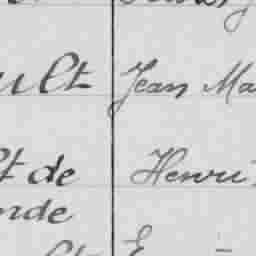 ult Jean Ma
t de Henri
nde